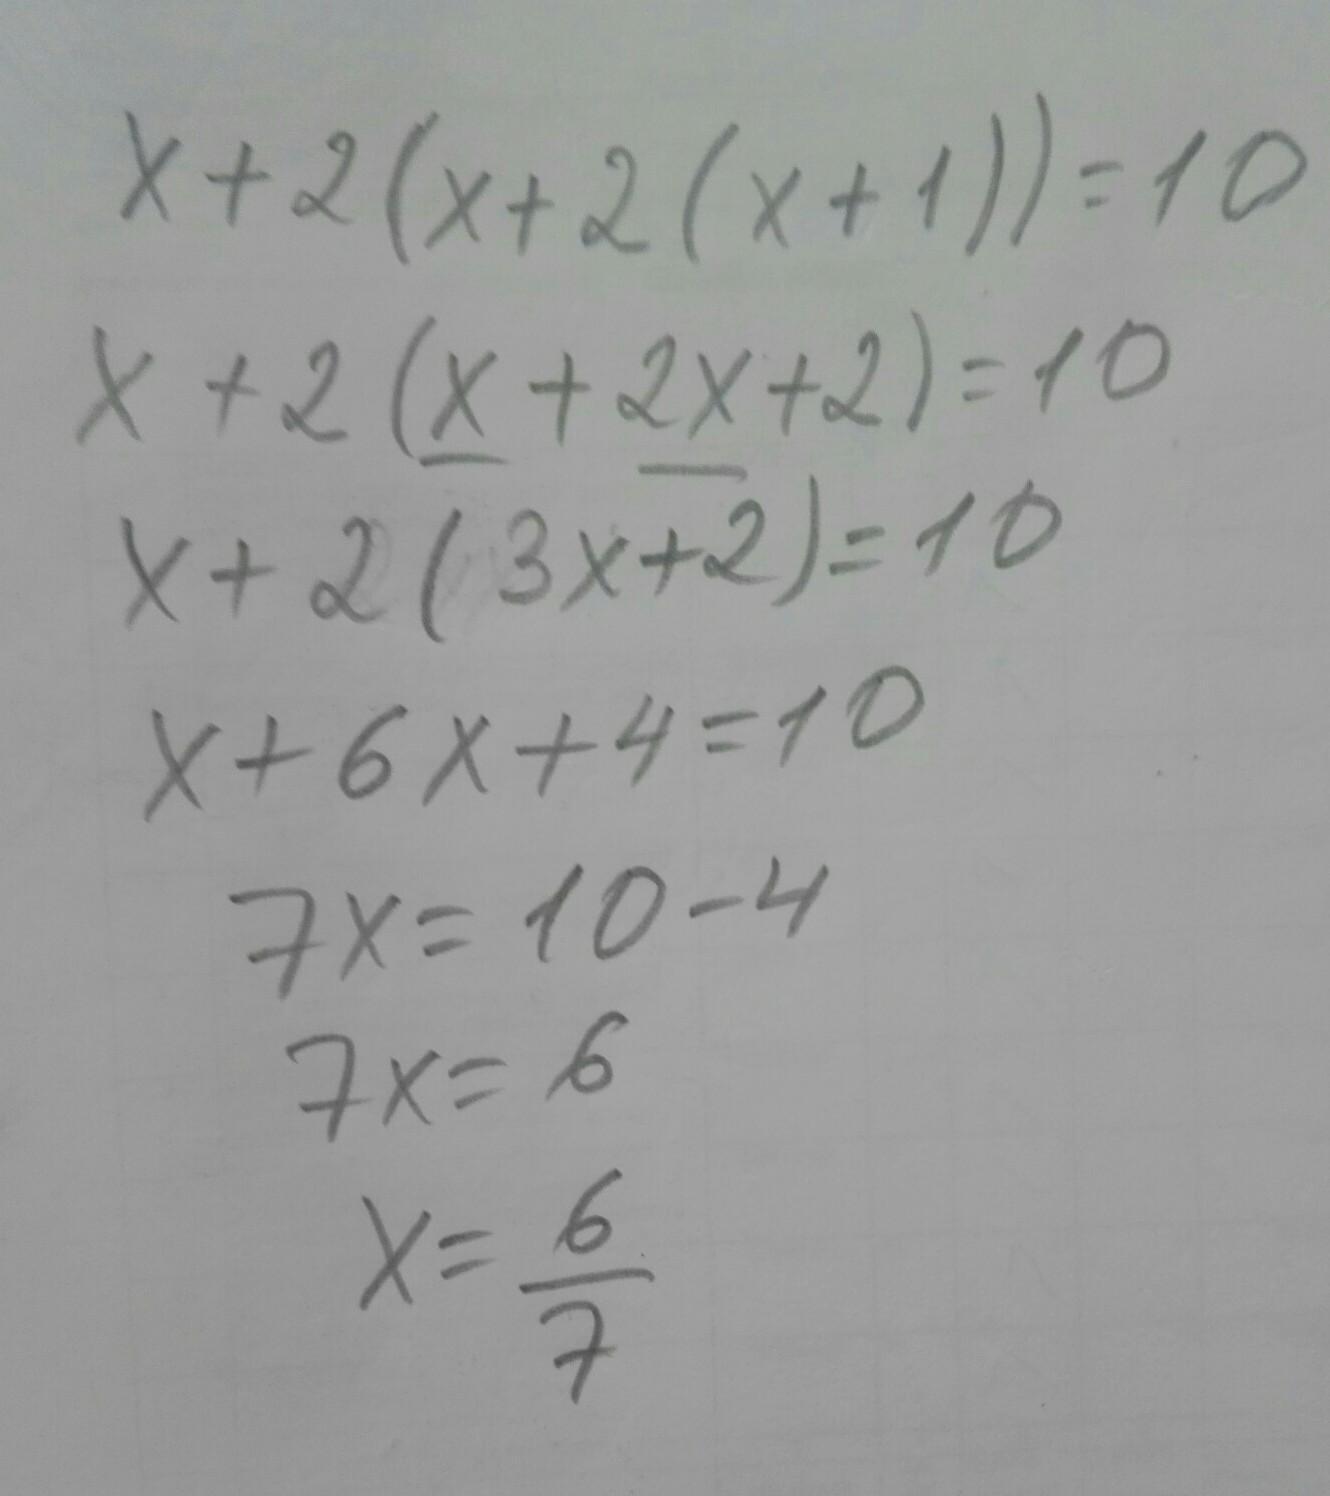 x+2(x+2(x+1))=10
x+2(x+2x+2)=10
x+2(3x+2)=10
x+6x+4=10
7x=10-4
7x=6
x=6/7